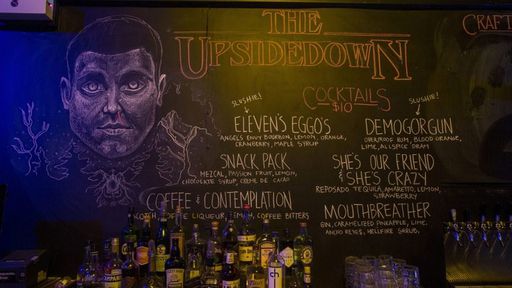 THE
UPSIDEDOWN
CRAFT
COCKTAILS
$10
SLUSHIE!
ELEVEN'S EGGO'S
ANGELS ENVY BOURBON, LEMON, ORANGE,
CRANBERRY, MAPLE SYRUP
SNACK PACK
MEZCAL, PASSION FRUIT, LEMON,
CHOCOLATE SYRUP, CREME DE CACAO
COFFEE & CONTEMPLATION
LIQUEUR, LEMON, COFFEE BITTERS
SLUSHIE!
DEMOGORGUN
OVERPROOF RUM, BLOOD ORANGE,
LIME, ALLSPICE DRAM
SHE'S OUR FRIEND
& SHE'S CRAZY
REPOSADO TEQUILA, AMARETTO, LEMON,
STRAWBERRY
MOUTHBREATHER
GIN, CARAMELIZED PINEAPPLE, LIME,
ANCHO REYES, HELLFIRE SHRUB,